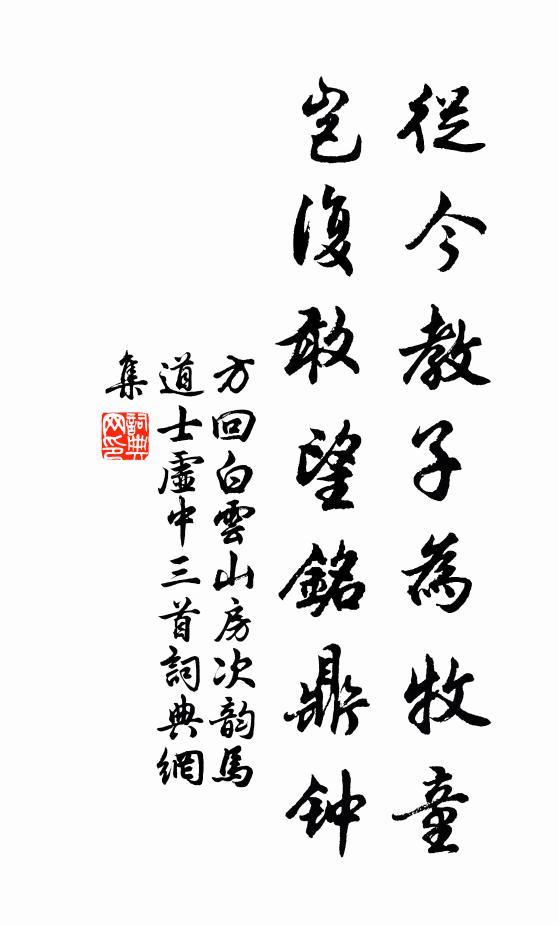 從今教子為牧童
豈復敢望銘鼎钟
方回白雲山房次韵馬
道士虛中三首詞典網
集
詞典
网印